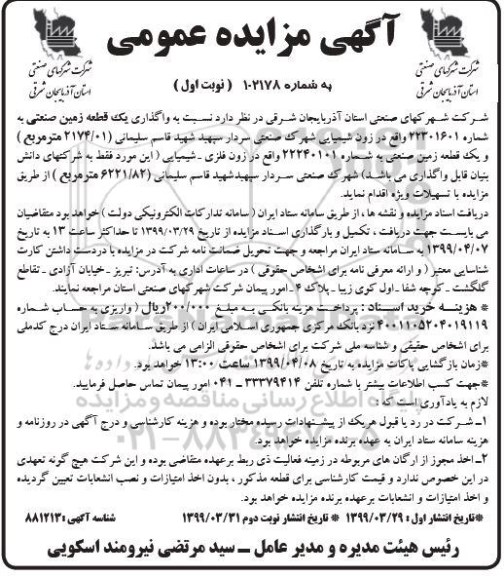 آگهی مزایده عمومی
به شماره ۱۰۲۱۷۸ ( نوبت اول )
شرکت شهرکهای صنعتی
استان آذربایجان شرقی
شرکت شهرکهای صنعتی
استان آذربایجان شرقی
شرکت شهرکهای صنعتی استان آذربایجان شرقی در نظر دارد نسبت به واگذاری یک قطعه زمین صنعتی به
شماره ۲۲۳۰۱۶۰۱ واقع در زون شیمیایی شهرک صنعتی سردار سپهبد شهید قاسم سلیمانی (۲۱۷۴/۰۱ مترمربع )
و یک قطعه زمین صنعتی به شماره ۲۲۲۴۰۱۰۱ واقع در زون فلزی - شیمیایی ( این مورد فقط به شرکتهای دانش
بنیان قابل واگذاری می باشد) شهرک صنعتی سردار سپهبدشهید قاسم سلیمانی (۶۲۲۱/۸۲ مترمربع ) از طریق
مزایده با تسهیلات ویژه اقدام نماید.
دریافت اسناد مزایده و نقشه ها ، از طریق سامانه ستاد ایران ( سامانه تدارکات الکترونیکی دولت ) خواهد بود متقاضیان
می بایست جهت دریافت ، تکمیل و بارگذاری اسناد مزایده از تاریخ ۱۳۹۹/۰۳/۲۹ تا حداکثر ساعت ۱۳ به تاریخ
۱۳۹۹/۰۴/۰۷ به سامانه ستاد ایران مراجعه و جهت تحویل ضمانت نامه شرکت در مزایده با دردست داشتن کارت
شناسایی معتبر ( و ارائه معرفی نامه برای اشخاص حقوقی ) در ساعات اداری به آدرس: تبریز -خیابان آزادی -تقاطع
گلگشت -کوچه شفا -اول کوی زیبا -پلاک ۴ -امور پیمان شرکت شهرکهای صنعتی استان مراجعه نمایند.
* هزینه خرید اسناد : پرداخت هزینه بانکی به مبلغ ۲۰۰/۰۰۰ریال ( واریزی به حساب شماره
۴۰۰۱۱۰۵۲۰۴۰۱۹۱۱۹ نزد بانک مرکزی جمهوری اسلامی ایران ) از طریق سامانه ستاد ایران درج کدملی
برای اشخاص حقیقی و شناسه ملی شرکت برای اشخاص حقوقی الزامی می باشد.
*زمان بازگشایی پاکات مزایده به تاریخ ۱۳۹۹/۰۴/۰۸ ساعت ۱۳:۰۰ خواهد بود.
*جهت کسب اطلاعات بیشتر با شماره تلفن ۳۳۳۷۹۴۱۴ - ۰۴۱ امور پیمان تماس حاصل فرمایید.
لازم به یادآوری است که :
۱- شرکت در رد یا قبول هریک از پیشنهادات رسیده مختار بوده و هزینه کارشناسی و درج آگهی در روزنامه و
هزینه سامانه ستاد ایران به عهده برنده مزایده خواهد بود.
۲- اخذ مجوز از ارگان های مربوطه در زمینه فعالیت ذی ربط برعهده متقاضی بوده و این شرکت هیچ گونه تعهدی
در این خصوص ندارد و قیمت کارشناسی برای قطعه مذکور ، بدون اخذ امتیازات و نصب انشعابات تعیین گردیده
و اخذ امتیازات و انشعابات برعهده برنده مزایده خواهد بود.
*تاریخ انتشار نوبت اول : ۱۳۹۹/۰۳/۲۹ * تاریخ انتشار نوبت دوم ۱۳۹۹/۰۳/۳۱ شناسه آگهی :۸۸۱۲۱۳
رئیس هیئت مدیره و مدیر عامل - سید مرتضی نیرومند اسکویی